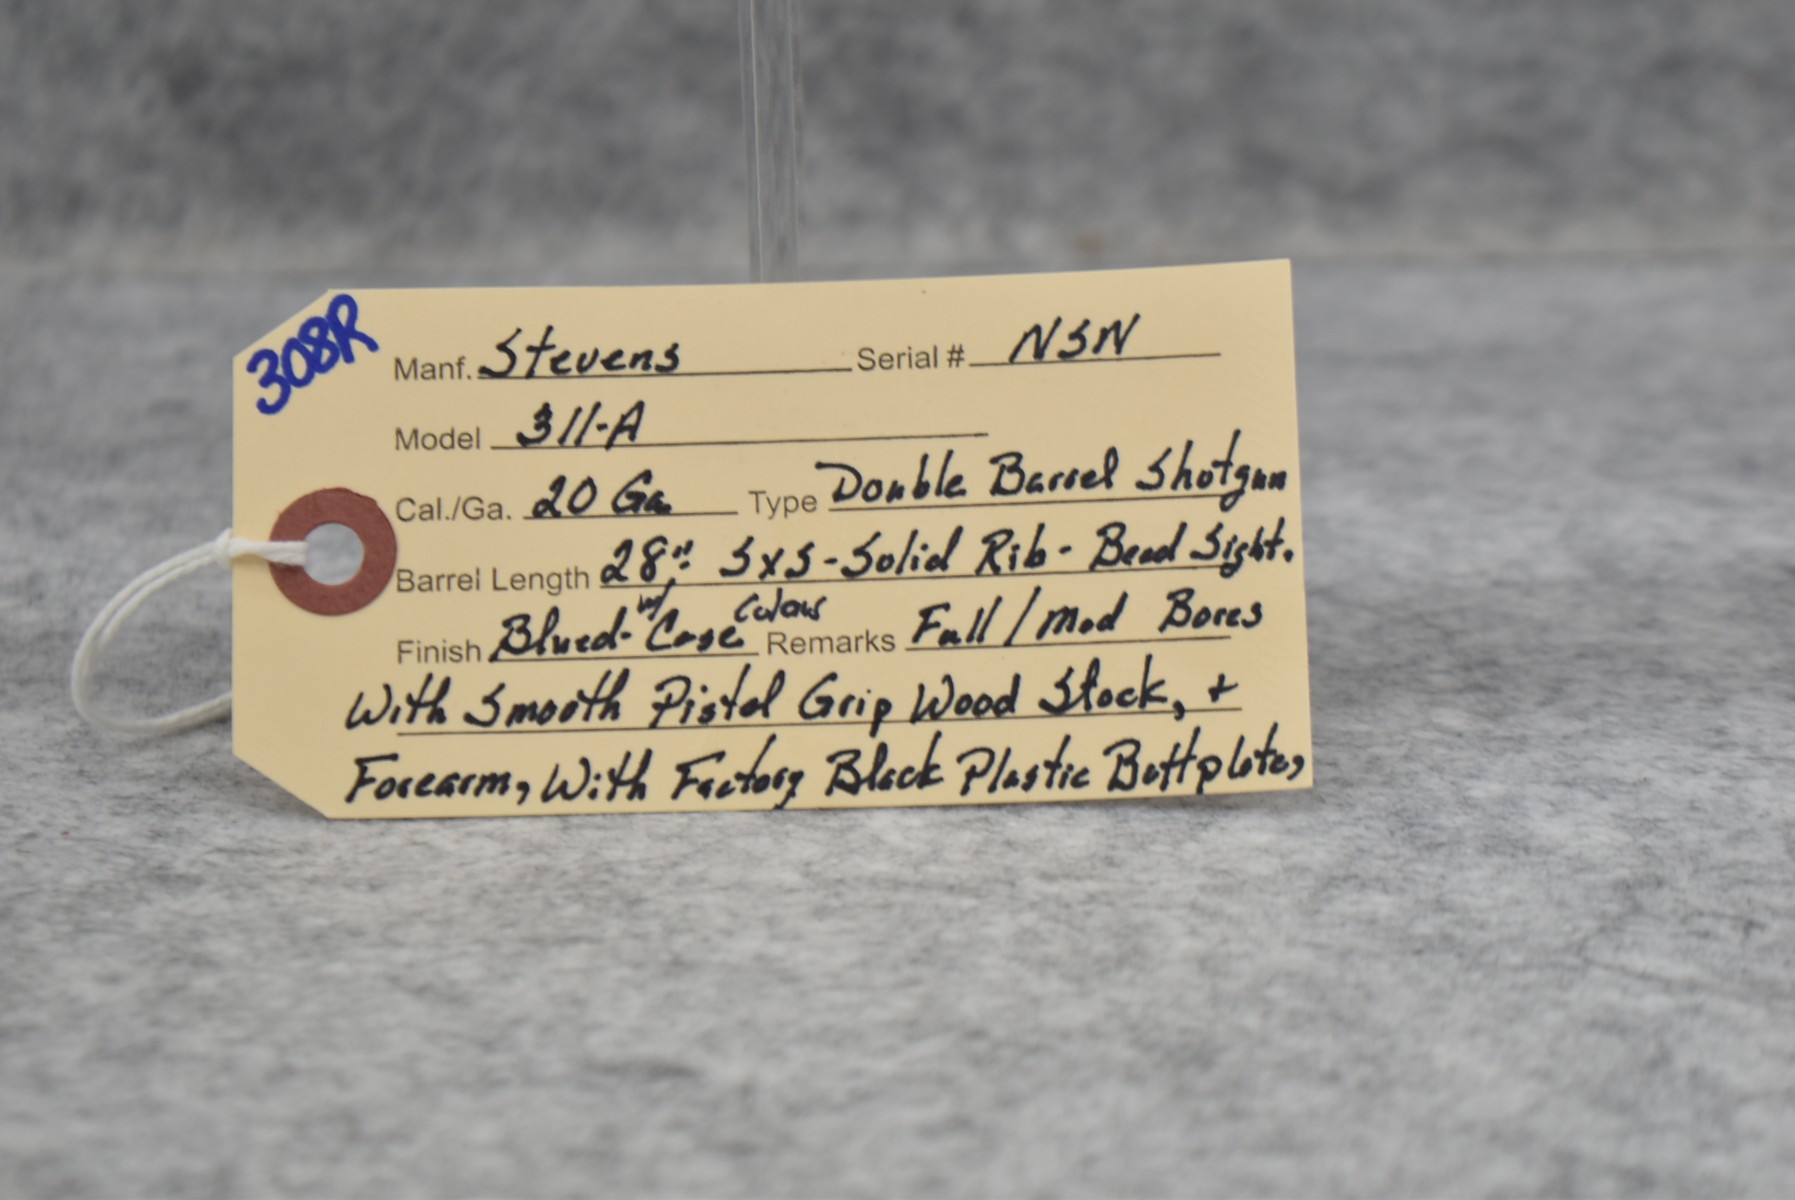 308R
Manf. Stevens Serial # NSN
Model 311-A
Cal./Ga. 20 Ga. Type Double Barrel Shotgun
Barrel Length 28": SxS-Solid Rib- Bead Sight.
Finish Blued- w/ Case Colors Remarks Full/Mod Bores
With Smooth Pistol Grip Wood Stock, +
Forearm, With Factory Black Plastic Buttplate,